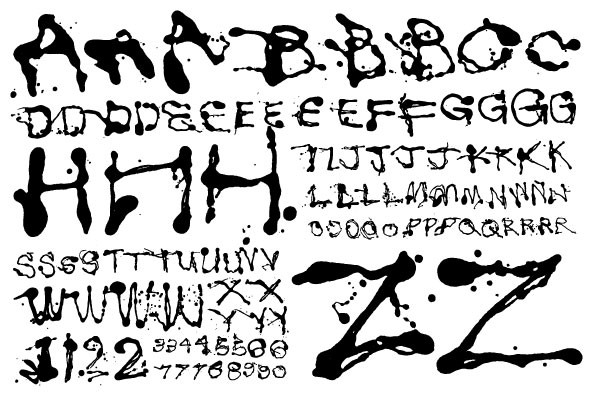 AAABBBCC
DDDDEEEEEEFFGGGG
HHH
IIJJJJKKKK
LLLLMMMNNNN
OOOOOPPPPQQRRRR
SSSSTTTUUUVV
WWWW
XX
YYYY
1122
33445566
7777688990
ZZ